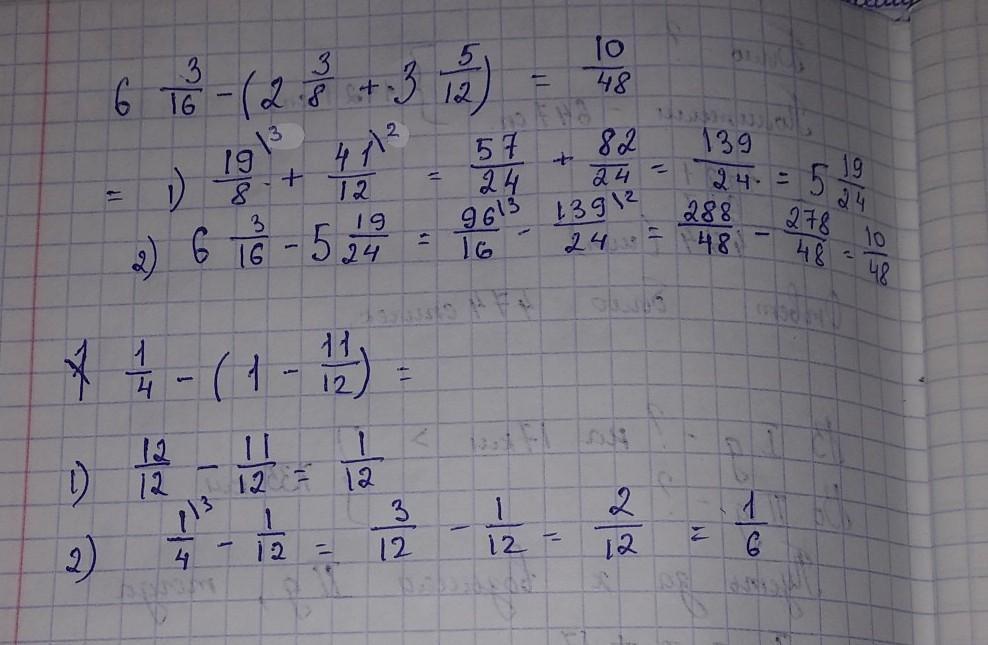 6 3/16 - (2 3/8 + 3 5/12) = 10/48
= 1) 19/8 \3 + 41/12 \2 = 57/24 + 82/24 = 139/24 = 5 19/24
2) 6 3/16 - 5 19/24 = 96/16 \3 - 139/24 \2 = 288/48 - 278/48 = 10/48
1/4 - (1 - 11/12) =
1) 12/12 - 11/12 = 1/12
2) 1/4 \3 - 1/12 = 3/12 - 1/12 = 2/12 = 1/6